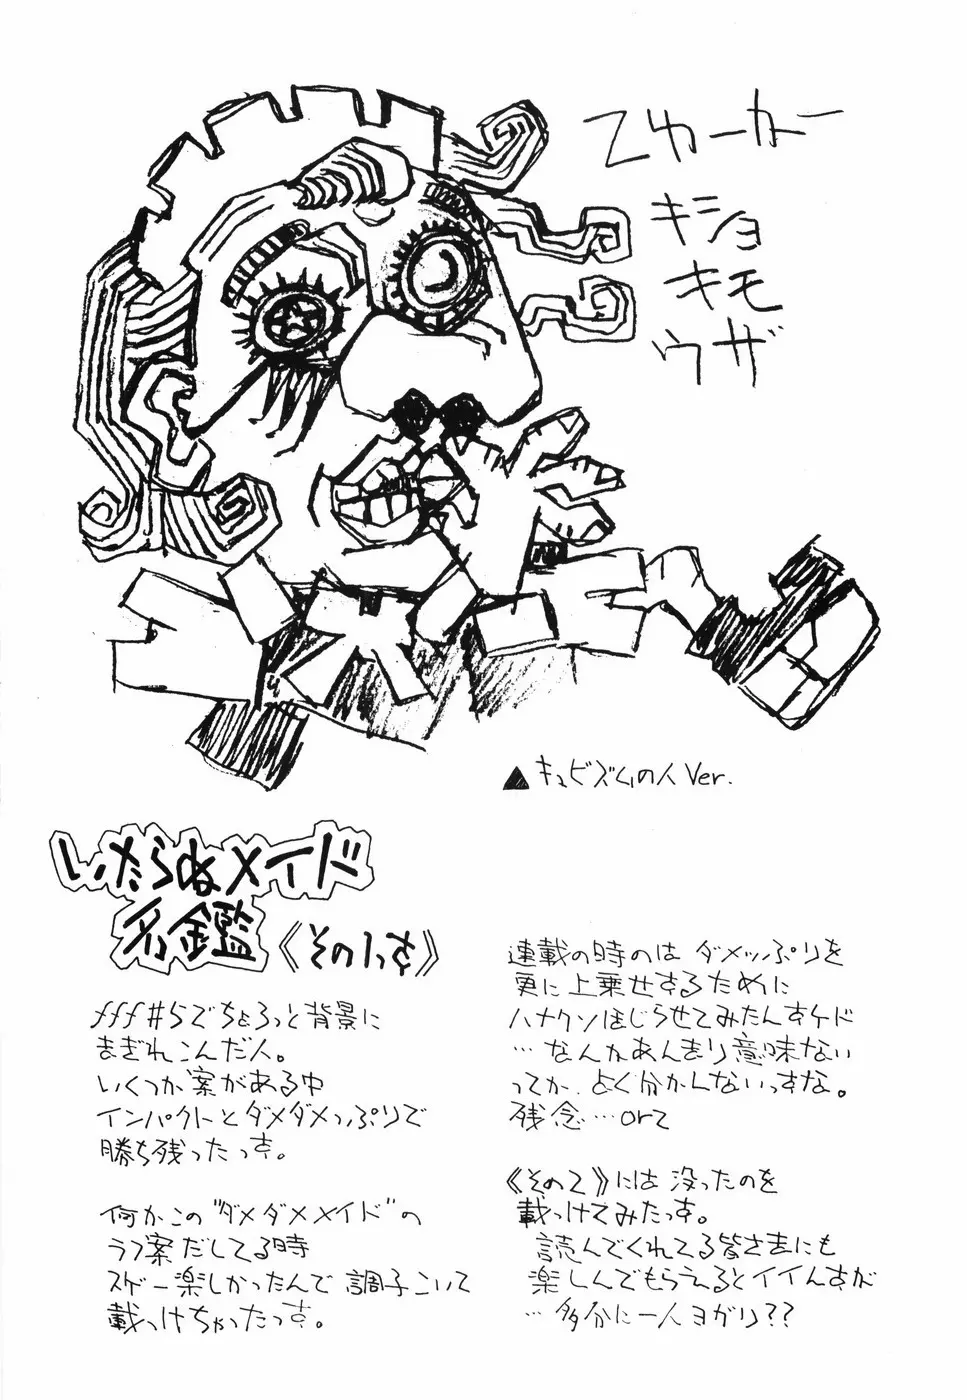 キショ
キモ
ウザ
▲キュビズムの人Ver.
いたらぬメイド
名鑑
《その1っす》
fff#5でちょろっと背景に
まぎれこんだ人。
いくつか案がある中
インパクトとダメダメっぷりで
勝ち残ったっす。
何かこの"ダメダメメイド"の
ラフ案だしてる時
スゲー楽しかったんで調子こいて
載っけちゃったっす。
連載の時のは ダメッぷりを
更に上乗せするために
ハナクソほじらせてみたんすケド
…なんかあんまり意味ない
ってか、よく分かんないっすな。
残念…orz
《その2》には没ったのを
載っけてみたっす。
読んでくれてる皆さまにも
楽しんでもらえるとイイんすが
…多分に一人ヨガリ??